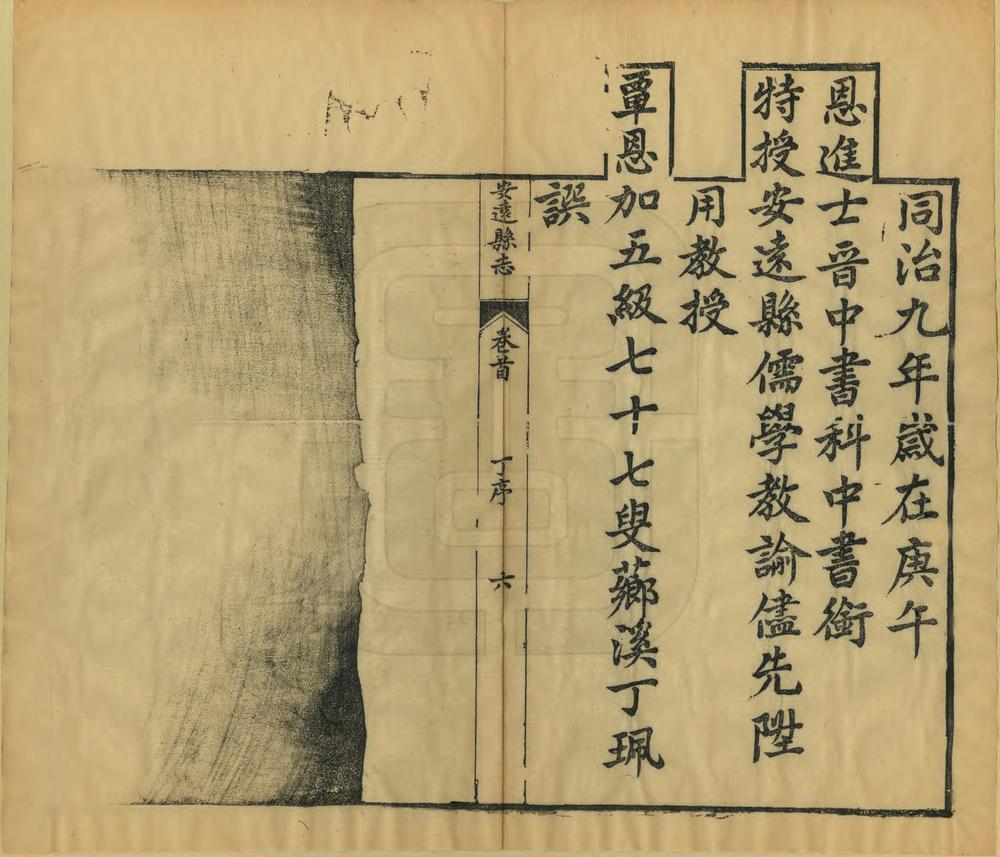 同治九年歲在庚午
恩進士晉中書科中書銜
特授安遠縣儒學教諭儘先陞
用教授
覃恩加五級七十七叟薌溪丁珮
譔
安遠縣志 卷首 丁序 六